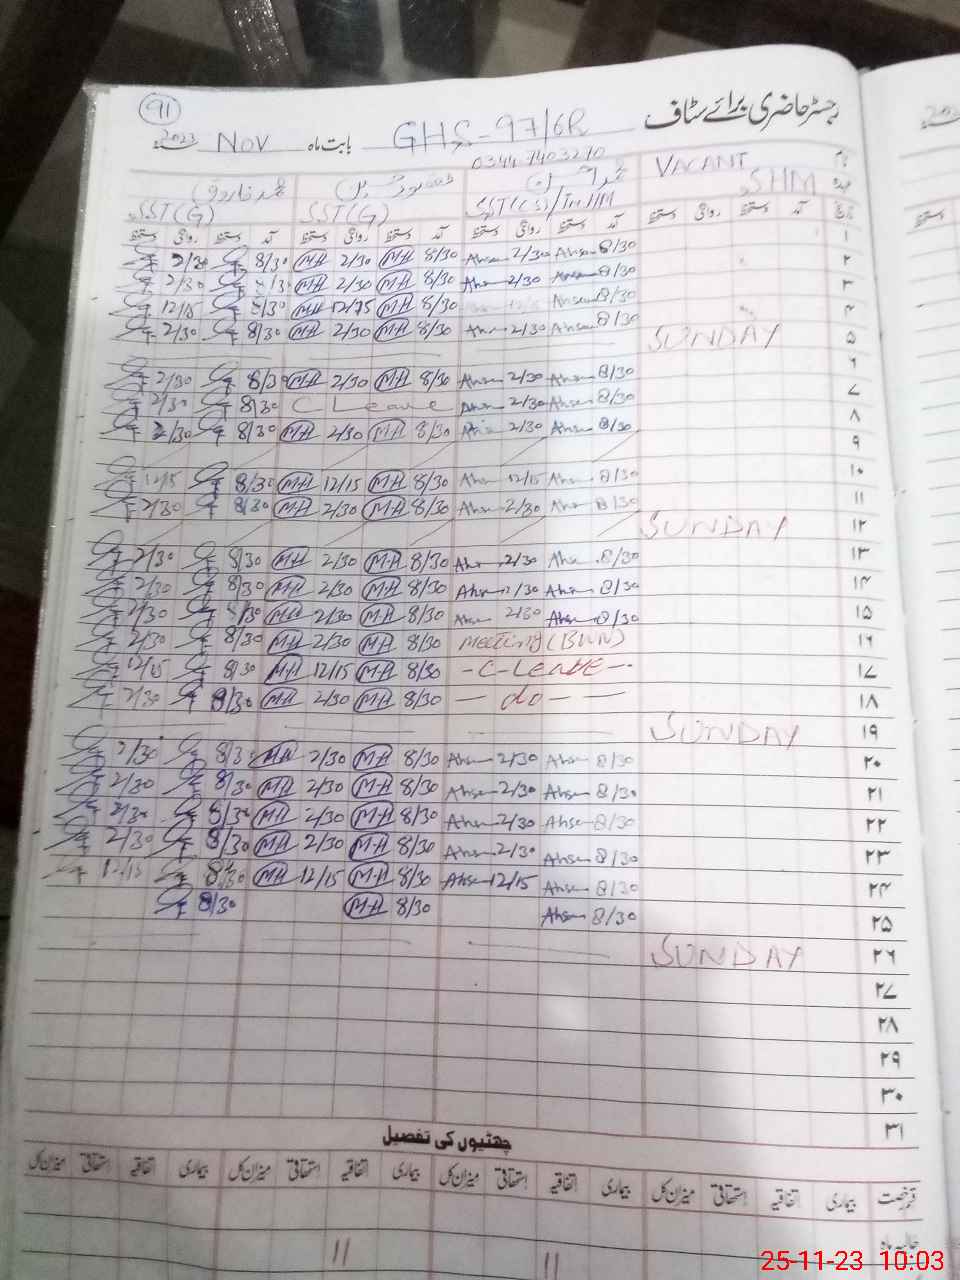 91
رجسٹر حاضری برائے سٹاف
GHS-97/6R بابت ماہ Nov 2023
0344 7403290
نام VACANT
عہدہ SHM SST(CS)/InHM SST(G) SST(G) محمد فاروق
تاریخ آمد دستخط روانگی دستخط آمد دستخط روانگی دستخط آمد دستخط روانگی دستخط آمد دستخط روانگی دستخط
۱ 8/30 Ahsan 2/30 Ahsan 8/30 MH 2/30 MH 8/30 2/30
۲ 8/30 Ahsan 2/30 Ahsan 8/30 MH 2/30 MH 8/30 2/30
۳ 8/30 Ahsan 8/30 MH 12/15 MH 8/30 12/15
۴ 8/30 Ahsan 2/30 Ahsan 8/30 MH 2/30 MH 8/30 2/30
۵ SUNDAY
۶ 8/30 Ahsan 2/30 Ahsan 8/30 MH 2/30 MH 8/30 2/30
۷ 8/30 Ahsan 2/30 Ahsan C Leave 8/30 2/30
۸ 8/30 Ahsan 2/30 Ahsan 8/30 MH 2/30 MH 8/30 2/30
۹
۱۰ 8/30 Ahsan 12/15 Ahsan 8/30 MH 12/15 MH 8/30 12/15
۱۱ 8/30 Ahsan 2/30 Ahsan 8/30 MH 2/30 MH 8/30 2/30
۱۲ SUNDAY
۱۳ 8/30 Ahsan 2/30 Ahsan 8/30 MH 2/30 MH 8/30 2/30
۱۴ 8/30 Ahsan 2/30 Ahsan 8/30 MH 2/30 MH 8/30 2/30
۱۵ 8/30 Ahsan 2/30 Ahsan 8/30 MH 2/30 MH 8/30 2/30
۱۶ Meeting (BWN) 8/30 MH 2/30 MH 8/30 2/30
۱۷ -C-LEAVE- 8/30 MH 12/15 MH 8/30 12/15
۱۸ — do — 8/30 MH 2/30 MH 8/30 2/30
۱۹ SUNDAY
۲۰ 8/30 Ahsan 2/30 Ahsan 8/30 MH 2/30 MH 8/30 2/30
۲۱ 8/30 Ahsan 2/30 Ahsan 8/30 MH 2/30 MH 8/30 2/30
۲۲ 8/30 Ahsan 2/30 Ahsan 8/30 MH 2/30 MH 8/30 2/30
۲۳ 8/30 Ahsan 2/30 Ahsan 8/30 MH 2/30 MH 8/30 2/30
۲۴ 8/30 Ahsan 12/15 Ahsan 8/30 MH 12/15 MH 8/30 12/15
۲۵ 8/30 Ahsan 8/30 MH 8/30
۲۶ SUNDAY
۲۷
۲۸
۲۹
۳۰
۳۱
چھٹیوں کی تفصیل
قسم رخصت بیماری اتفاقیہ استحقاقی میزان کل بیماری اتفاقیہ استحقاقی میزان کل بیماری اتفاقیہ استحقاقی میزان کل بیماری اتفاقیہ استحقاقی میزان کل
حالیہ ماہ 11 11
25-11-23 10:03